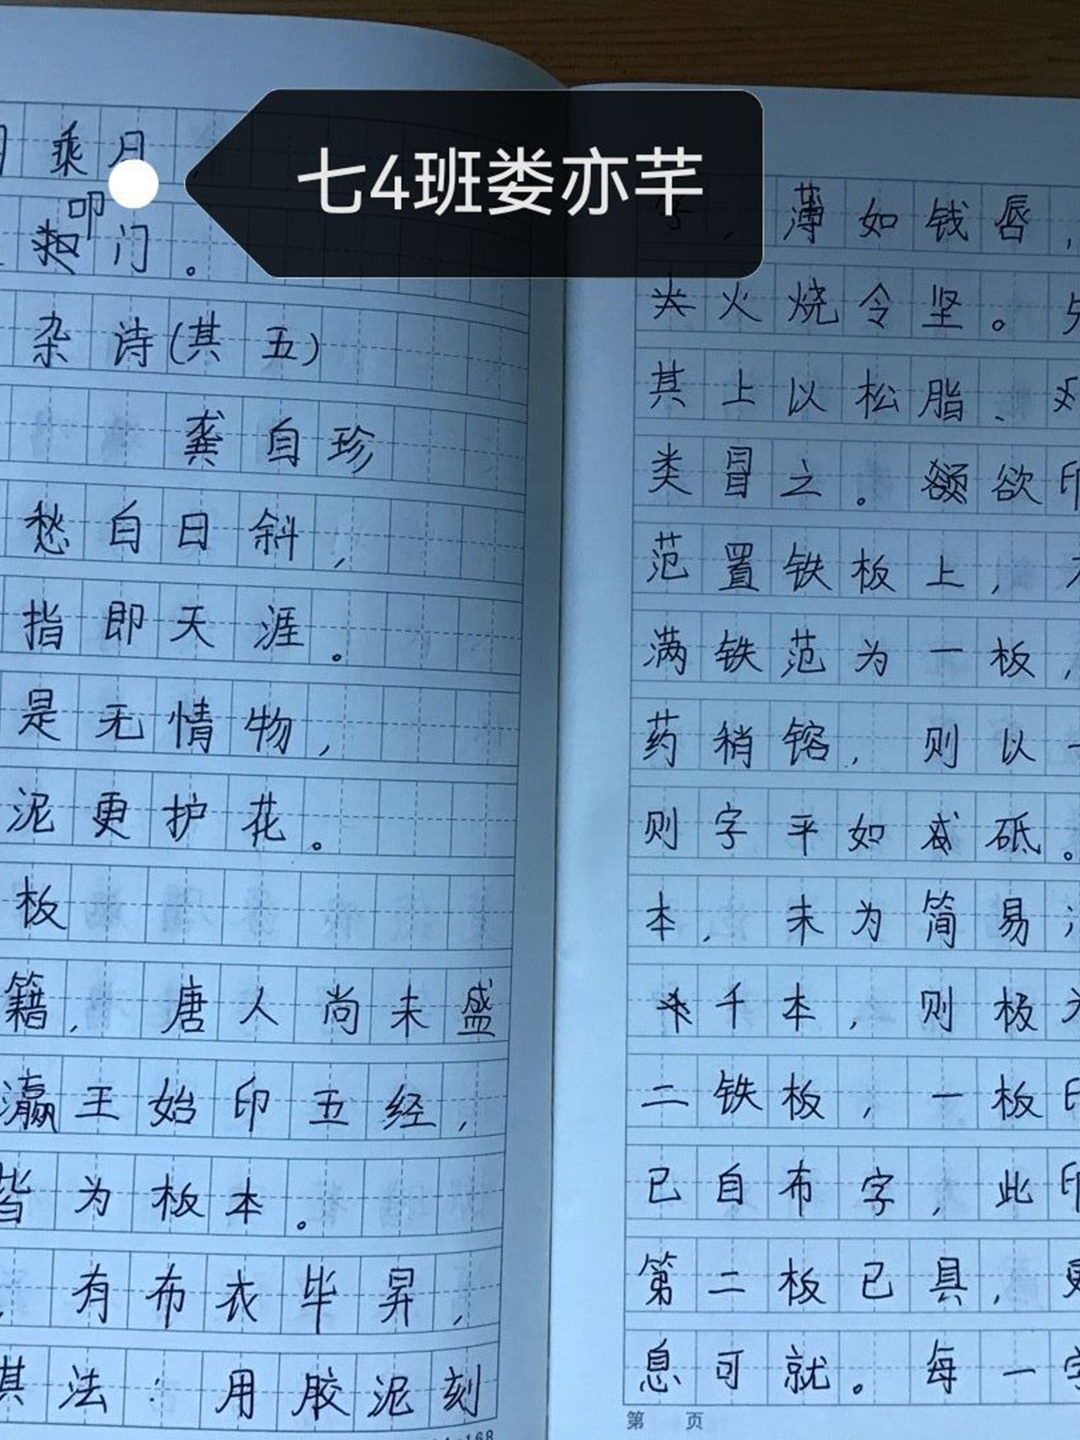 七4班娄亦芊
乘月
叩
门。
杂诗(其五)
龚自珍
愁白日斜,
指即天涯。
是无情物,
泥更护花。
板
籍,唐人尚未盛
瀛王始印五经,
皆为板本。
有布衣毕昇,
其法:用胶泥刻
字,薄如钱唇,
火烧令坚。
其上以松脂、
类冒之。欲印
范置铁板上,
满铁范为一板,
药稍镕,则以一
则字平如砥。
本,未为简易;
千本,则极为
二铁板,一板印
已自布字,此印
第二板已具,更
息可就。每一字
第 页
168